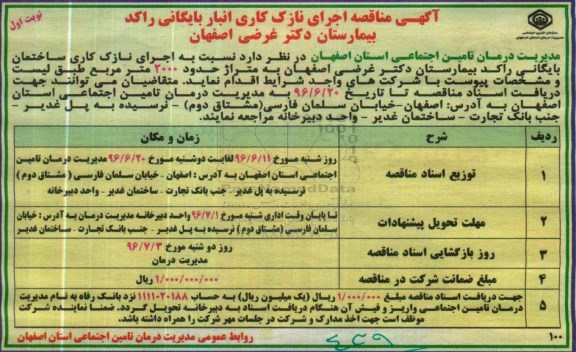 نوبت اول
آگهی مناقصه اجرای نازک کاری انبار بایگانی راکد
بیمارستان دکتر غرضی اصفهان
مدیریت درمان تامین اجتماعی استان اصفهان در نظر دارد نسبت به اجرای نازک کاری ساختمان
بایگانی راکد بیمارستان دکتر غرضی اصفهان به متراژ حدود ۲۰۰۰ متر مربع طبق لیست
و مشخصات پیوست با شرکت های واجد شرایط اقدام نماید. متقاضیان می توانند جهت
دریافت اسناد مناقصه تا تاریخ ۹۶/۶/۲۰ به مدیریت درمان تامین اجتماعی استان
اصفهان به آدرس: اصفهان-خیابان سلمان فارسی(مشتاق دوم) - نرسیده به پل غدیر -
جنب بانک تجارت - ساختمان غدیر - واحد دبیرخانه مراجعه نمایند.
ردیف شرح زمان و مکان
۱ توزیع اسناد مناقصه
روز شنبه مورخ ۹۶/۶/۱۱ لغایت دوشنبه مورخ ۹۶/۶/۲۰ مدیریت درمان تامین
اجتماعی استان اصفهان به آدرس : اصفهان - خیابان سلمان فارسی ( مشتاق دوم )
نرسیده به پل غدیر - جنب بانک تجارت - ساختمان غدیر - واحد دبیرخانه
۲ مهلت تحویل پیشنهادات
تا پایان وقت اداری شنبه مورخ ۹۶/۷/۱ واحد دبیرخانه مدیریت درمان به آدرس : خیابان
سلمان فارسی (مشتاق دوم ) نرسیده به پل غدیر - جنب بانک تجارت - ساختمان غدیر
۳ روز بازگشایی اسناد مناقصه
روز دو شنبه مورخ ۹۶/۷/۳
مدیریت درمان
۴ مبلغ ضمانت شرکت در مناقصه ۱/۰۰۰/۰۰۰/۰۰۰ ریال
۵ جهت دریافت اسناد مناقصه مبلغ ۱/۰۰۰/۰۰۰ ریال (یک میلیون ریال) به حساب ۱۱۱۱۰۲۰۱۸۸ نزد بانک رفاه به نام مدیریت
درمان تامین اجتماعی واریز و فیش آن هنگام دریافت اسناد به دبیرخانه تحویل گردد. ضمنا نماینده شرکت
موظف است جهت اخذ مدارک و شرکت در جلسات مهر شرکت را همراه داشته باشد.
روابط عمومی مدیریت درمان تامین اجتماعی استان اصفهان
۱۰۰